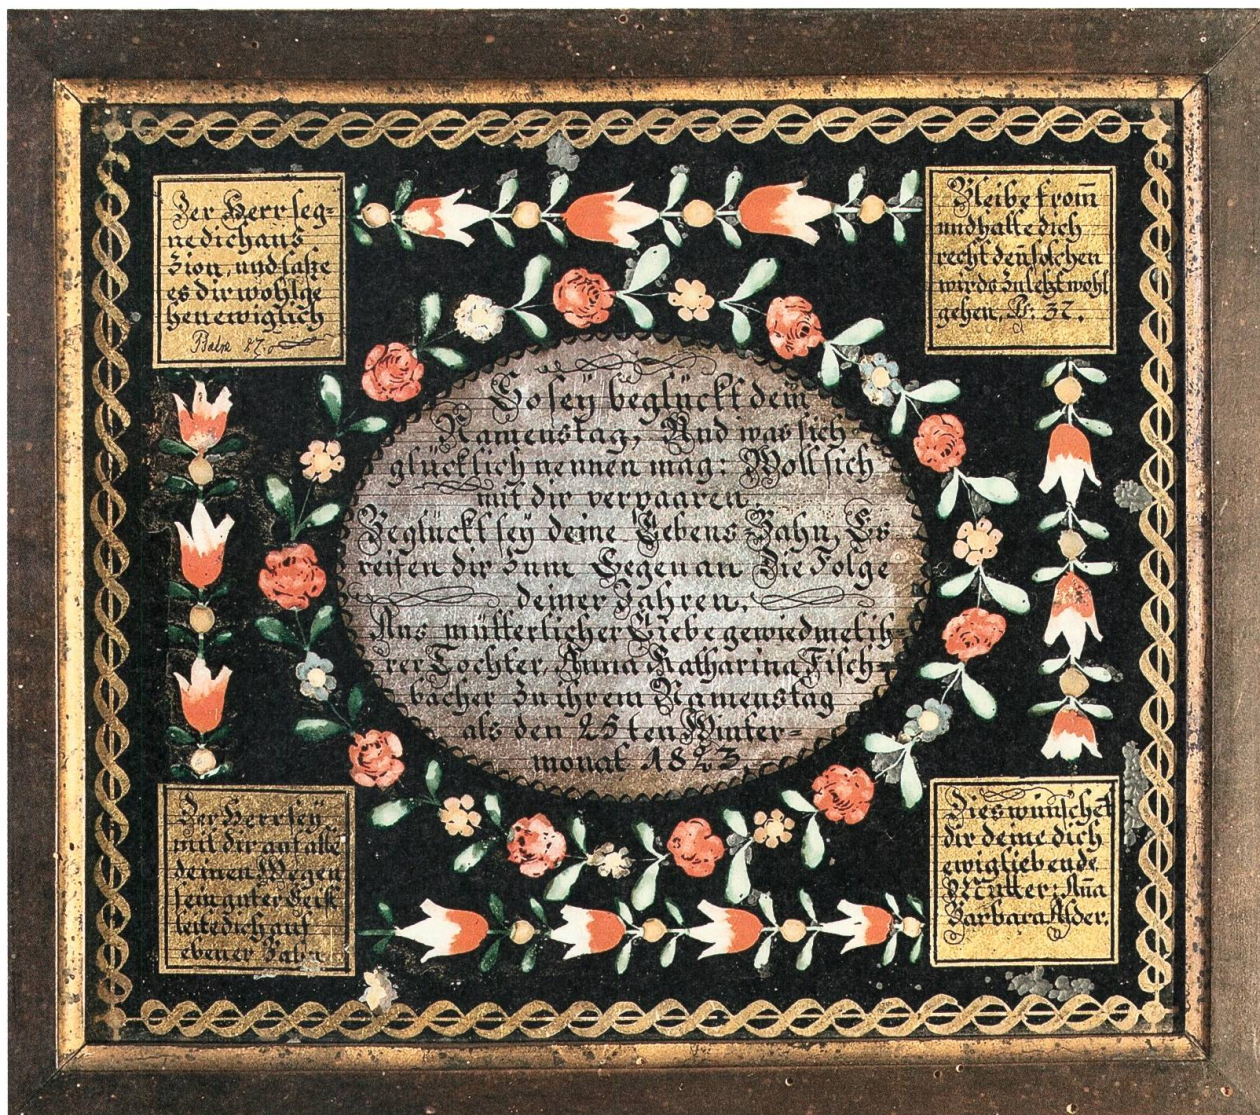 Der Herr seg=
ne dich aus
Zion, und laße
es dir wohlge
hen ewiglich
Bleibe from̄
und halte dich
recht den̄ solchen
wirds zulezt wohl
gehen, Ps: 37.
So seÿ beglückt dein
Namenstag, Und was sich
glücklich nennen mag: Woll sich
mit dir verpaaren
Beglückt seÿ deine Lebens Bahn, Es
reifen dir zum Segen an Die Folge
deiner Jahren,
Aus mütterlicher Liebe gewiedmet ih=
rer Tochter, Anna Katharina Fisch=
bacher zu ihrem Namenstag
als den 25 ten Winter=
monat 1823
Der Herr seÿ
mit dir auf alle
deinen Wegen
sein guter Geist
leite dich auf
ebener Bahn
Dies wünschet
dir deine dich
ewigliebende
Mutter: An̄a
Barbara Alder.